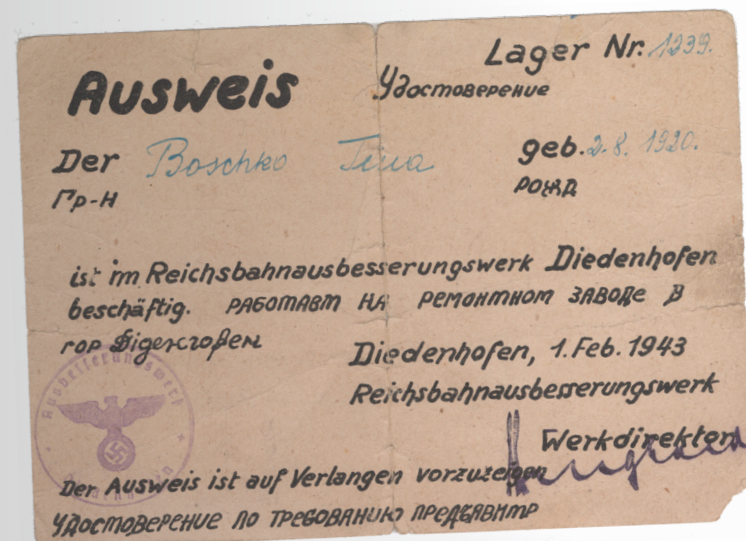 Lager Nr. 1239.
Ausweis Удостоверение
Der Boschko Tina geb. 2.8. 1920.
Гр-н рожд
ist im Reichsbahnausbesserungswerk Diedenhofen
beschäftig. работавт на ремонтном заводе в
гор Дигенгофен
Diedenhofen, 1. Feb. 1943
Reichsbahnausbesserungswerk
Werkdirektor
Ausbesserungswerk
Der Ausweis ist auf Verlangen vorzuzeigen
Удостоверение по требованию предбявитр